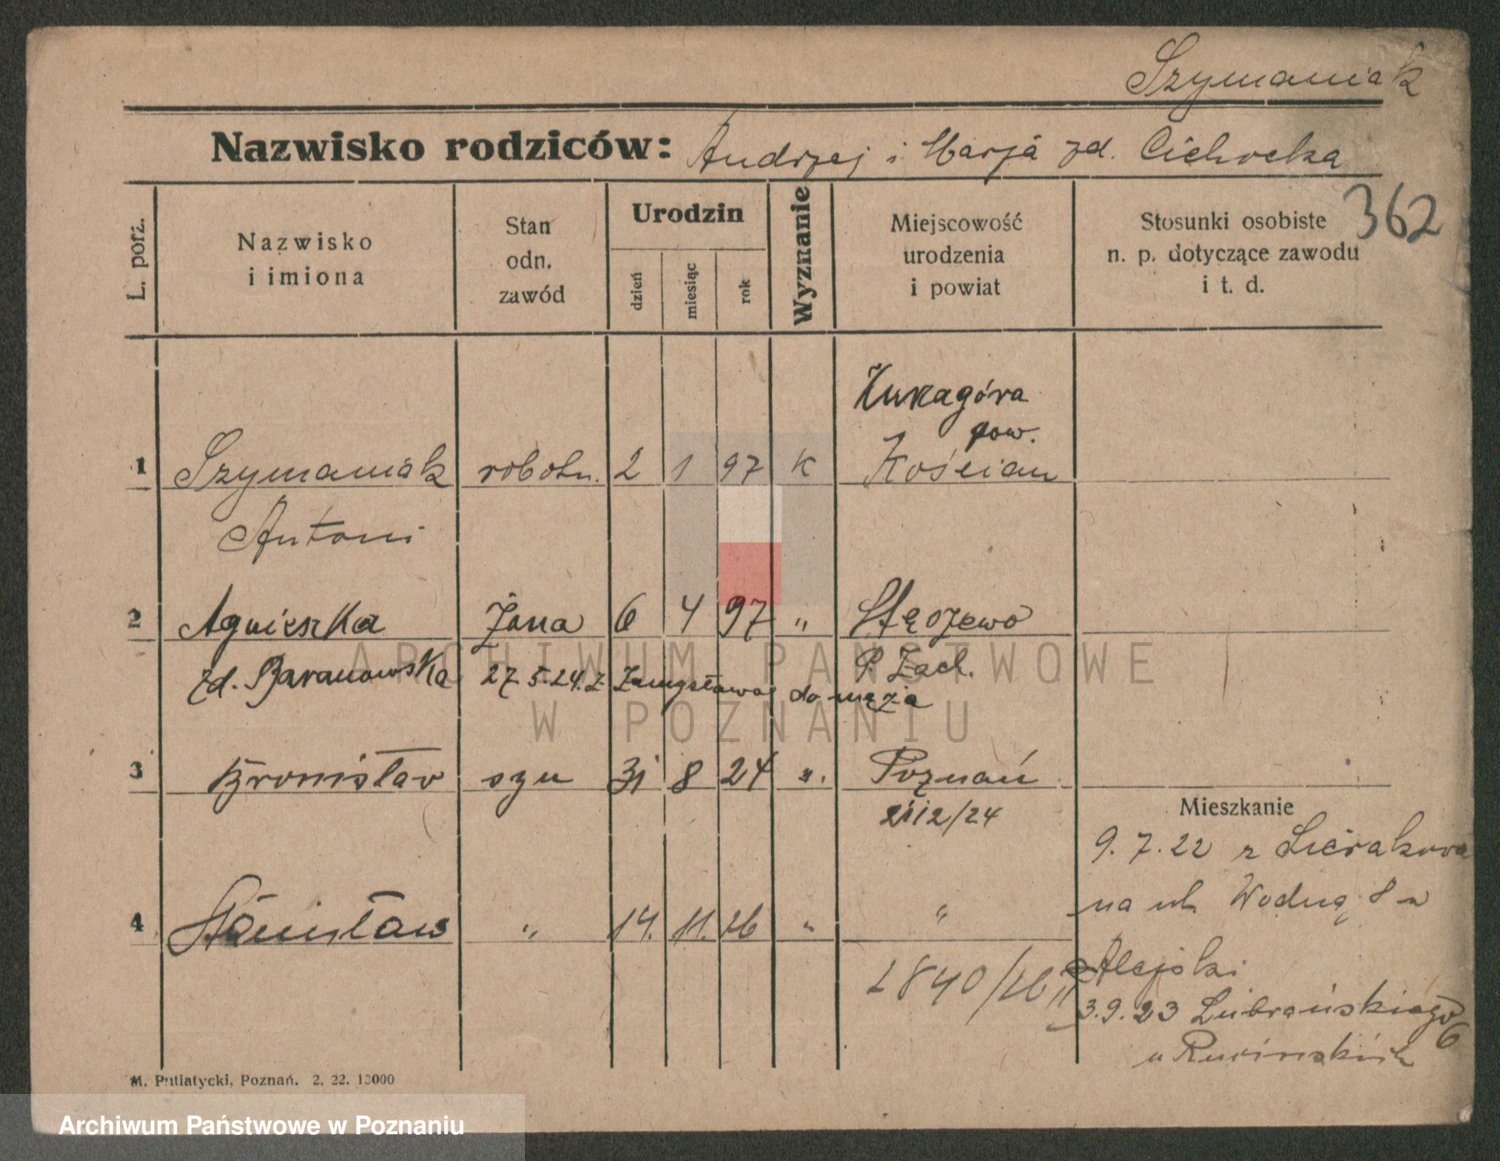 Szymaniak
Nazwisko rodziców: Andrzej i Marja zd. Cichocka
362
L. porz.
Nazwisko
i imiona
Stan
odn.
zawód
Urodzin
dzień
miesiąc
rok
Wyznanie
Miejscowość
urodzenia
i powiat
Stosunki osobiste
n. p. dotyczące zawodu
i t. d.
Żurzagóra
pow.
1 Szymaniak robotn. 2 1 97 K Kościan
Antoni
2 Agnieszka Żona 6 4 97 " Stęszewo
zd. Baranowska 27.5.24. z do męża
P. Zach.
ARCHIWUM PAŃSTWOWE
W POZNANIU
3 Bronisław syn 31 8 24 ". Poznań
2112/24
Mieszkanie
9.7.22 z Sierakowa
na ul. Wodną 8
4 Stanisław " 14. 11. 26 " "
1840/26
Alejski
3.9.23 Lubrańskiego 6
u
M. Putiatycki, Poznań. 2. 22. 10000
Archiwum Państwowe w Poznaniu